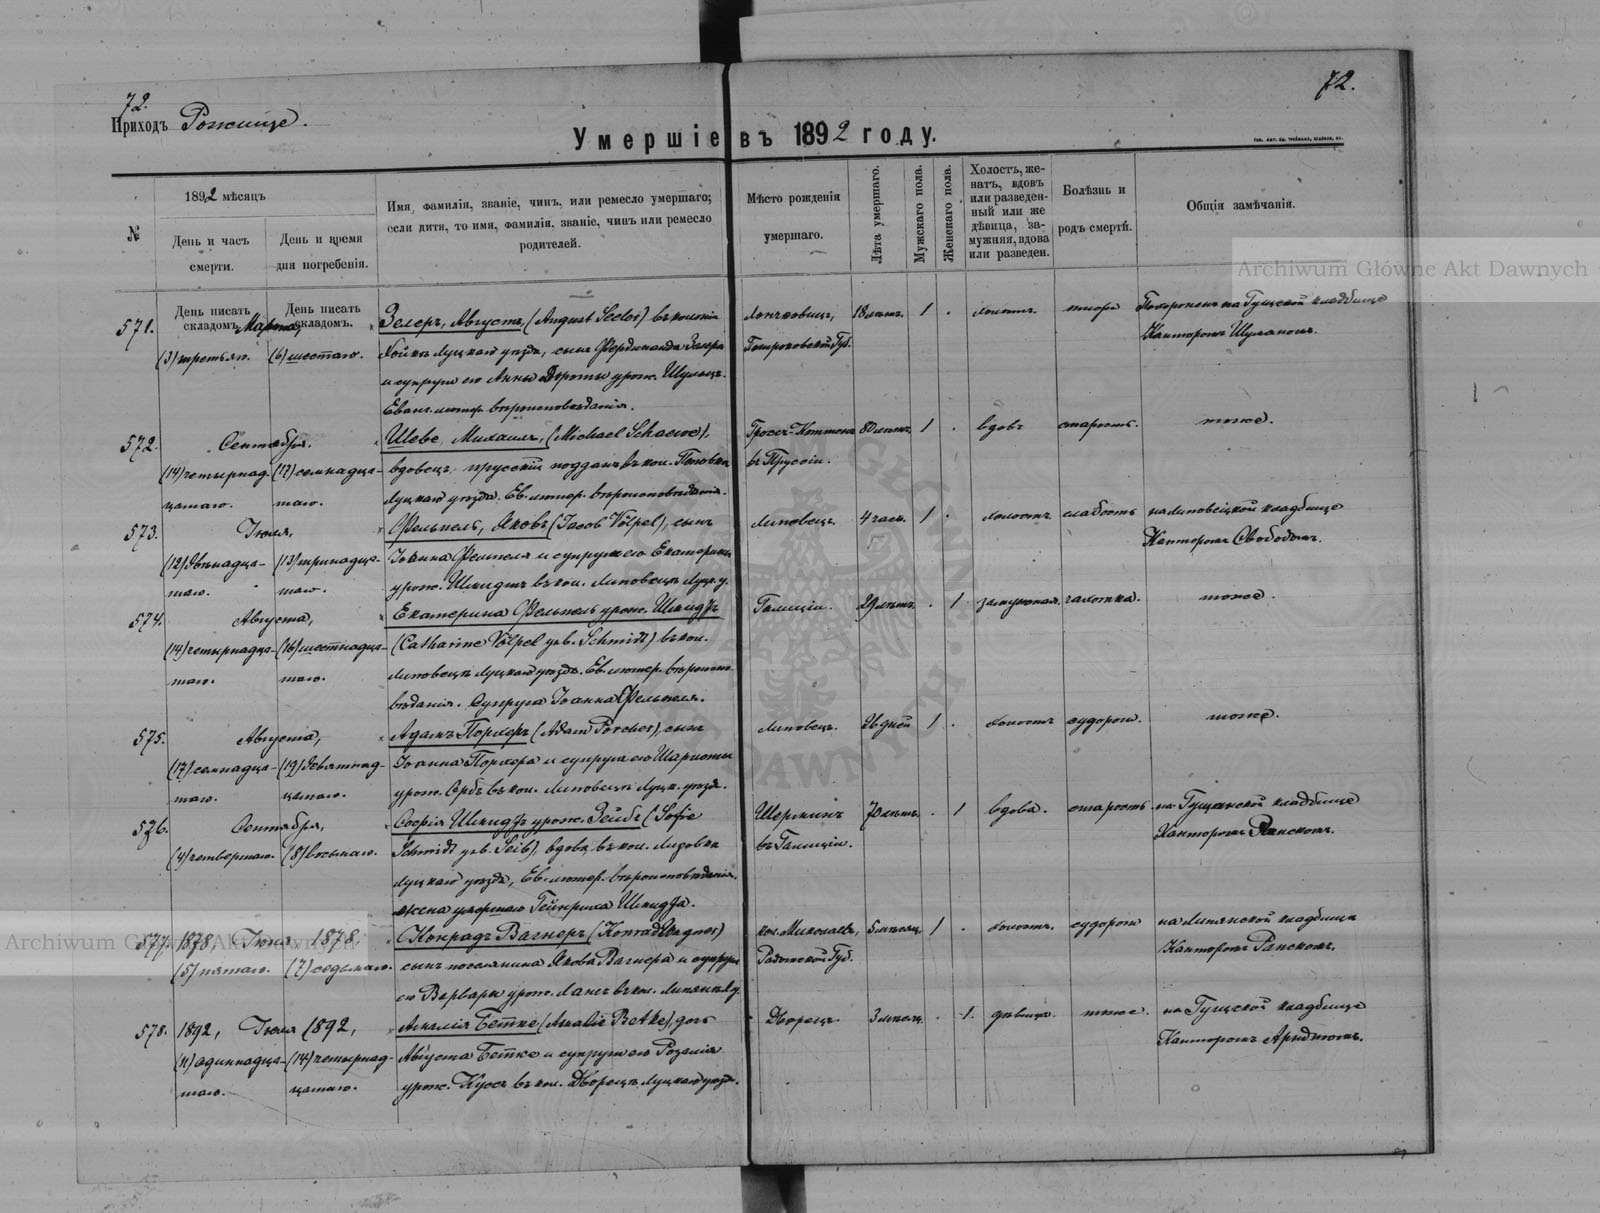 72.
72.
Приходъ Рожище.
Умершіе въ 1892 году.
№
1892 мѣсяцъ
День и часъ смерти.
День и время дня погребенія.
Имя, фамилія, званіе, чинъ, или ремесло умершаго;
если дитя, то имя, фамилія, званіе, чинъ или ремесло
родителей.
Мѣсто рожденія
умершаго.
Лѣта умершаго.
Мужскаго пола.
Женскаго пола.
Холостъ, же-
натъ, вдовъ
или разведен-
ный или же
дѣвица, за-
мужняя, вдова
или разведен.
Болѣзнь и
родъ смерти.
Общія замѣчанія.
День писать складомъ.
День писать складомъ.
571. Марта,
(3) третьяго. (6) шестаго.
Зелеръ, Августъ, (August Seeler) въ колоніи
луцкаго уѣзда, сынъ Фердинанда Зелера
и супруги его Анны Дороты урож. Шульцъ.
Еванг. лютер. вѣроисповѣданія.
18 лѣтъ. 1 . холостъ. тифъ
Петроковской Губ.
Похороненъ на Гущской кладбище
Канторомъ Шуманомъ.
572. Сентября.
(14) четырнад- (17) семнадца-
цатаго. таго.
Шеве Михаилъ, (Michael Schaewe),
вдовецъ прусскій поддан. въ кол.
луцкаго уѣзда. Ев. лютер. вѣроисповѣданія.
въ Прусіи.
80 лѣтъ. 1 . вдовъ старость. тоже.
573. Іюля,
(12) двѣнадца- (13) тринадца-
таго. таго.
Фельпель, Яковъ (Jacob Völpel), сынъ
Іоанна Фельпеля и супруги его Екатерины
урож. Шмидтъ въ кол. Липовецъ Луцк. у.
Липовецъ. 4 часа. 1 . холостъ. слабость
на Липовецкой кладбище
Канторомъ Свободомъ.
574. Августа,
(14) четырнадца- (16) шестнадца-
таго. таго.
Екатерина Фельпель урож. Шмидтъ
(Catharine Völpel geb. Schmidt) въ кол.
Липовецъ луцкаго уѣзда. Ев. лютер. вѣроиспо-
вѣданія. Супруга Іоанна Фельпеля.
Галиціи. 29 лѣтъ. . 1 замужняя. чахотка. тоже.
575. Августа,
(17) семнадца- (19) девятнад-
таго. цатаго.
Адамъ Порхеръ (Adam Porcher), сынъ
Іоанна Порхера и супруги его Шарлоты
урож. въ кол. Липовецъ Луцк. уѣзда.
Липовецъ. 26 дней 1 . холостъ судороги. тоже.
576. Сентября,
(4) четвертаго. (8) восьмаго.
Софія Шмидтъ урож. Зейбъ (Sofie
Schmidt geb. Seib), вдова въ кол.
луцкаго уѣзда, Ев. лютер. вѣроисповѣданія.
жена умершаго Гейнриха Шмидта.
въ Галиціи.
70 лѣтъ. . 1 вдова. старость.
на Гущанской кладбище
Канторомъ Ранскомъ.
577. 1878, Іюня 1878,
(5) пятаго. (7) седьмаго.
Конрадъ Вагнеръ (Konrad Wagner)
сынъ поселянина Якова Вагнера и супруги
его Варвары урож. Лангъ въ кол.
кол. Миколаевъ,
Радомской Губ.
5 мѣсяц. 1 . холостъ. судороги
на Липянской кладбище
Канторомъ Ранскомъ.
578. 1892, Іюля 1892,
(11) одиннадца- (14) четырнад-
таго. цатаго.
Амалія Бетке (Amalie Betke), дочь
Августа Бетке и супруги его Розалія
урож. Куссъ въ кол. Дворецъ луцкаго уѣзда.
Дворецъ. 3 мѣсяц. . 1. дѣвица. тоже.
на Гущской кладбище
Канторомъ Арндтомъ.
Archiwum Główne Akt Dawnych
Archiwum Główne Akt Dawnych